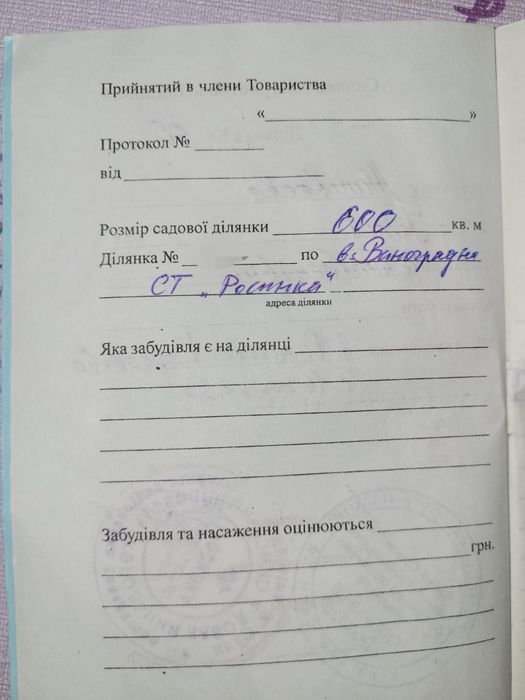 Прийнятий в члени Товариства
« »
Протокол №
від
Розмір садової ділянки 600 кв. м
Ділянка № по в. Виноградна
СТ „Росинка"
адреса ділянки
Яка забудівля є на ділянці
Забудівля та насаження оцінюються
грн.